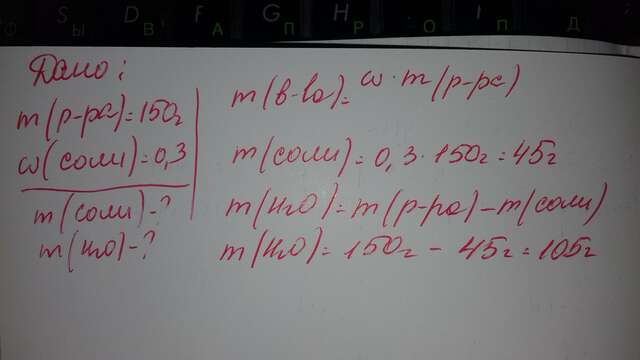 S D F G H J
Ы В А П Р О П Д
Дано:
m(р-ра)=150г
ω(соли)=0,3
m(соли)-?
m(H2O)-?
m(в-ва)=ω·m(р-ра)
m(соли)=0,3·150г=45г
m(H2O)=m(р-ра)-m(соли)
m(H2O)=150г-45г=105г